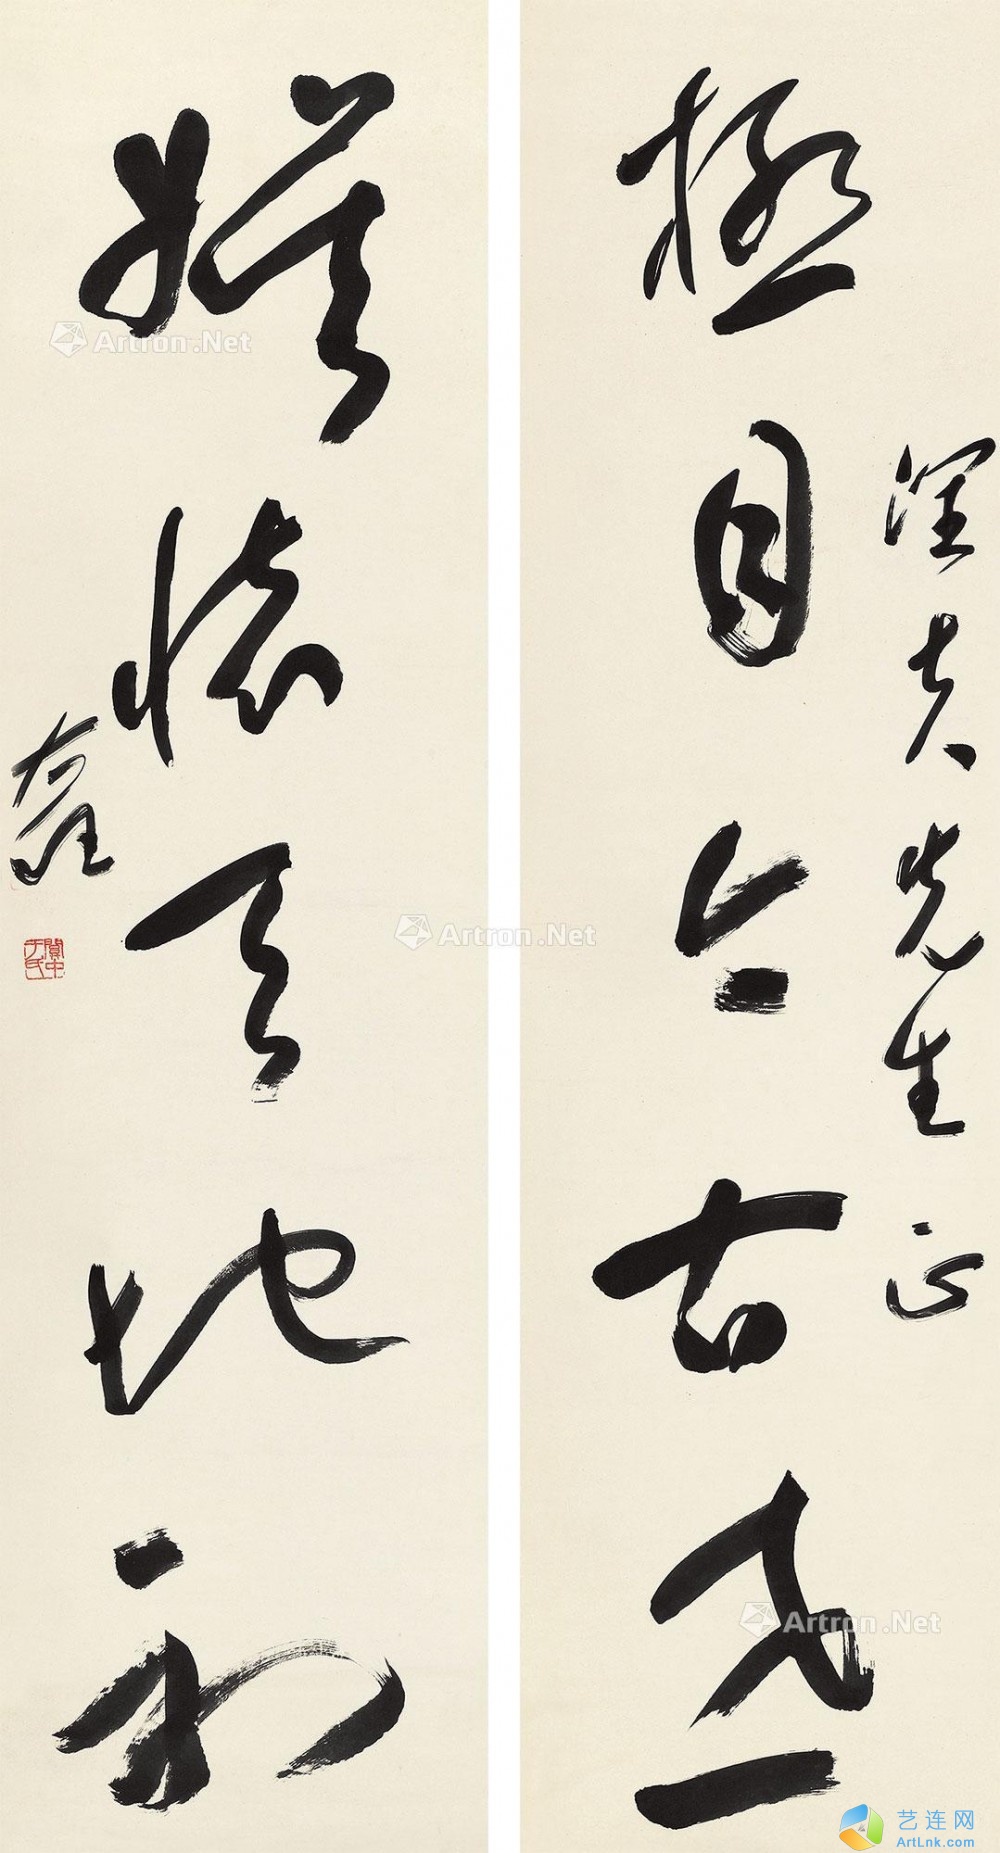 潤夫先生正
極目今古盛
縱懷天地
右任
關中于氏
Artron.Net
Artron.Net
Artron.Net
艺连网
ArtLnk.com